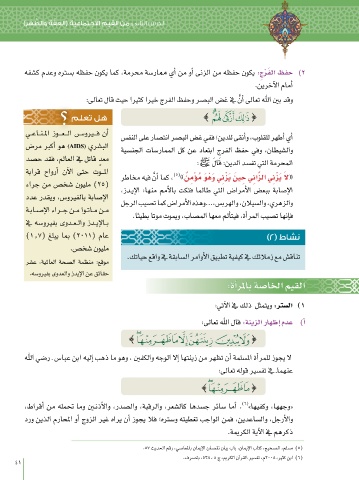 الدرس الثاني من القيم الاجتماعية (العفة والطهر)
٢) حفظ الفرج: ويكون حفظه من الزنى أو من أي ممارسة محرمة، كما يكون حفظه بستره وعدم كشفه
أمام الآخرين.
وقد بين الله تعالى أنَّ في غض البصر وحفظ الفرج خيرا كثيرا حيث قال تعالى:
﴿ ذَٰلِكَ أَزْكَىٰ لَهُمْ ﴾
أي أطهر للقلوب، وأنقى للدين؛ ففي غض البصر انتصار على النفس
والشيطان، وفي حفظ الفرج ابتعاد عن كل الممارسات الجنسية
المحرمة التي تفسد الدين: قال ﷺ:
«لا يَزْنِي الزَّانِي حِينَ يَزْنِي وَهُوَ مُؤْمِنٌ»(٥)، كما أنَّ فيه مخاطر
الإصابة ببعض الأمراض التي طالما فتكت بالأمم منها: الإيدز،
والزهري، والسيلان، والهربس...، وهذه الأمراض كما تصيب الرجل
فإنها تصيب المرأة، فيتألم معها المصاب، ويموت موتا بطيئا.
هل تعلم ؟
أن فيروس العوز المناعي
البشري (AIDS) هو أكبر مرض
معد قاتل في العالم، فقد حصد
الموت حتى الآن أرواح قرابة
(٢٥) مليون شخص من جراء
الإصابة بالفيروس، ويقدر عدد
من ماتوا من جراء الإصابة
بالإيدز والعدوى بفيروسه في
عام (٢٠١١) بما يبلغ (١,٧)
مليون شخص.
موقع: منظمة الصحة العالمية: عشر
حقائق عن الإيدز والعدوى بفيروسه.
نشاط (٢)
تناقش مع زملائك في كيفية تطبيق الأوامر السابقة في واقع حياتك.
القيم الخاصة بالمرأة:
١) الستر: ويتمثل ذلك في الآتي:
أ) عدم إظهار الزينة: قال الله تعالى:
﴿ وَلَا يُبْدِينَ زِينَتَهُنَّ إِلَّا مَا ظَهَرَ مِنْهَا ﴾
لا يجوز للمرأة المسلمة أن تظهر من زينتها إلا الوجه والكفين، وهو ما ذهب إليه ابن عباس، رضي الله
عنهما، في تفسير قوله تعالى:
﴿ مَا ظَهَرَ مِنْهَا ﴾
«وجهها، وكفيها»(٦)، أما سائر جسدها كالشعر، والرقبة، والصدر، والأذنين وما تحمله من أقراط،
والأرجل، والساعد، فمن الواجب تغطيته وستره؛ فلا يجوز أن يراه غير الزوج أو محارم الذين ورد
ذكرهم في الآية الكريمة.
(٥) مسلم، الصحيح، كتاب الإيمان، باب بيان نقصان الإيمان بالمعاصي، رقم الحديث ٥٧.
٤١